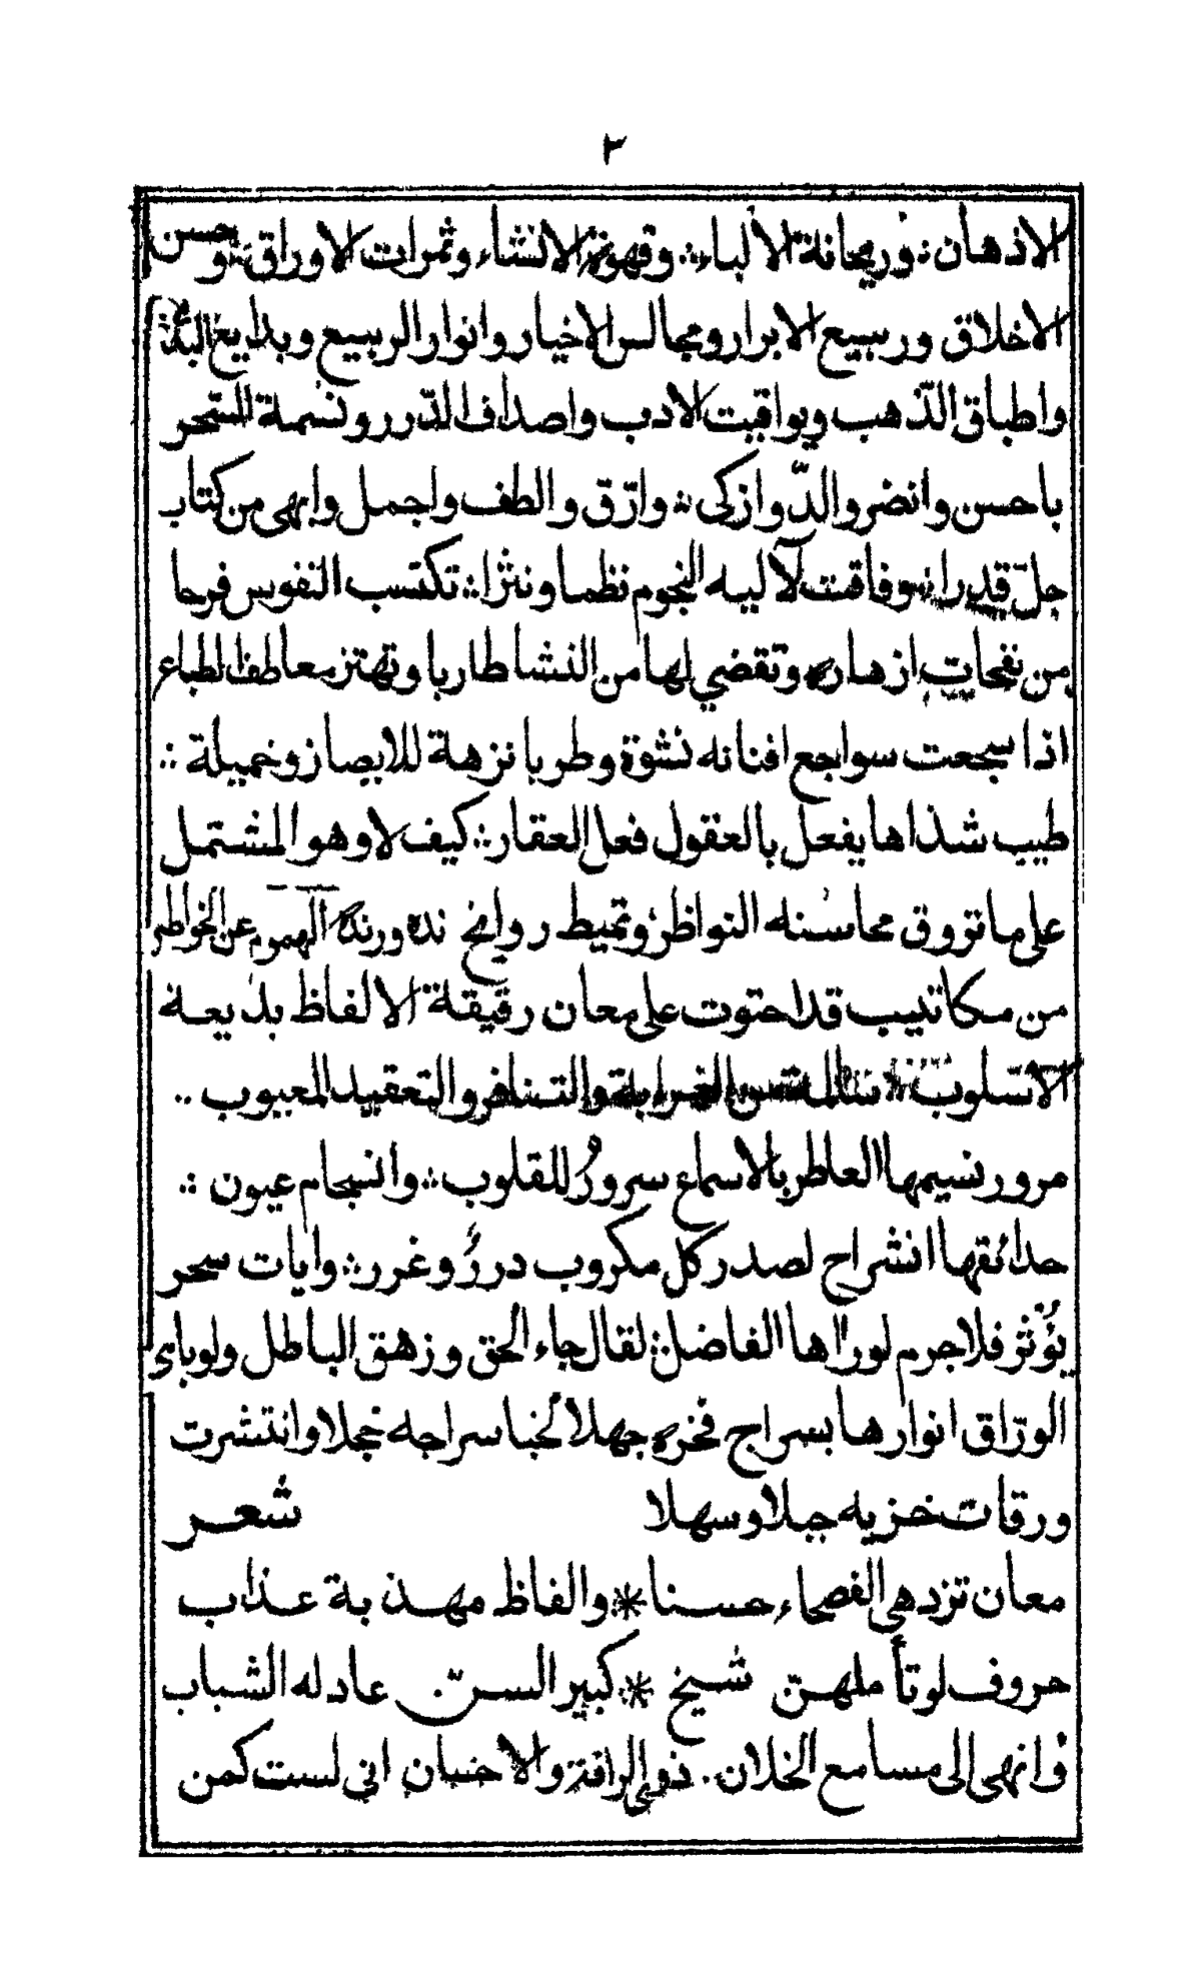 ٣
الاذهان ؛ وريحانة الألباء ؛ وقهوة الانشاء وثمرات الاوراق ؛ وحسن
الاخلاق وربيع الابرار ومجالس الاخيار وانوار الربيع وبدايع
واطباق الذهب ويواقيت الادب واصداف الدّرر ونسمة السّحر
باحسن وانضر والذّ وازكى ؛ وارّق والطف واجمل وابهى من كتاب
جلّ قدرا ؛ وفاقت لآليه النجوم نظما ونثرا ؛ تكتسب النفوس فرحا
من نفحات ازهاره وتقضي لها من النشاط اربا وتهتز معاطف الطباع
اذا سجعت سواجع افنانه نشوة وطربا نزهة للابصار وخميلة ؛
طيب شذاها يفعل بالعقول فعل العقار ؛ كيف لا وهو المشتمل
على ما تروق محاسنه النواظر ؛ وتميط روايح نده ورنده الهموم عن الخواطر
من مكاتيب قد احتوت على معان رقيقة الالفاظ بديعة
الاسلوب سالمة من الغرابة والتنافر والتعقيد المعيوب ..
مرور نسيمها العاطر بالاسماع سرورٌ للقلوب ؛ وانسجام عيون ؛
حدائقها انشراح لصدر كل مكروب دررٌ وغرر ؛ وايات سحر
يؤثر فلا جرم لورآها الفاضل ؛ لقال جاء الحق وزهق الباطل ولو باى
الورّاق انوارها بسراج فخره جهلا لخبا سراجه خجلا وانتشرت
ورقات خزيه جبلا وسهلا شعر
معان تزدهى الفصحاء حسنا * والفاظ مهذبة عذاب
حروف لو تأملهنّ شيخ * كبير السنّ عادله الشباب
وانهى الى مسامع الخلان . ذوى الرافة والاحسان اني لست كمن